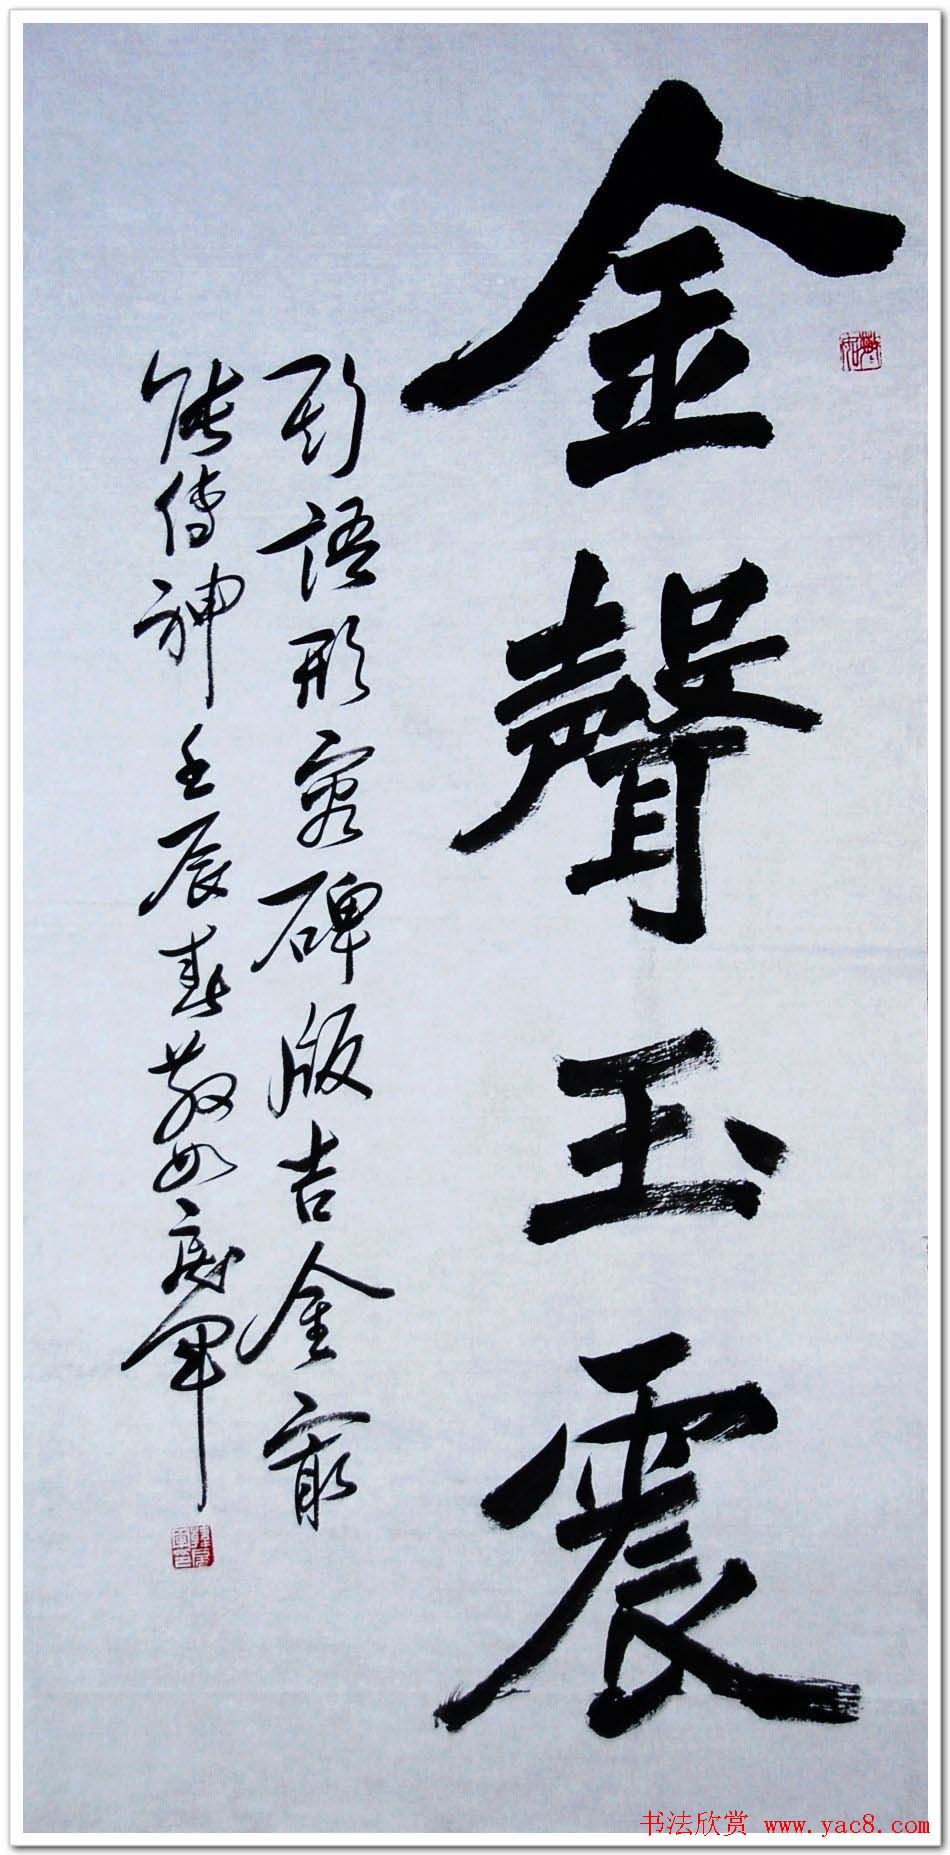 金聲玉震
語形容碑版吉金最
能傳神壬辰春敬如
書法欣赏 www.yac8.com